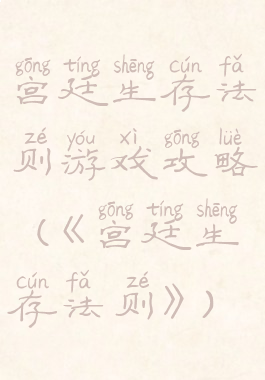 gōng tíng shēng cún fǎ
宫廷生存法
zé yóu xì gōng lüè
则游戏攻略
gōng tíng shēng
（《宫廷生
cún fǎ zé
存法则》）